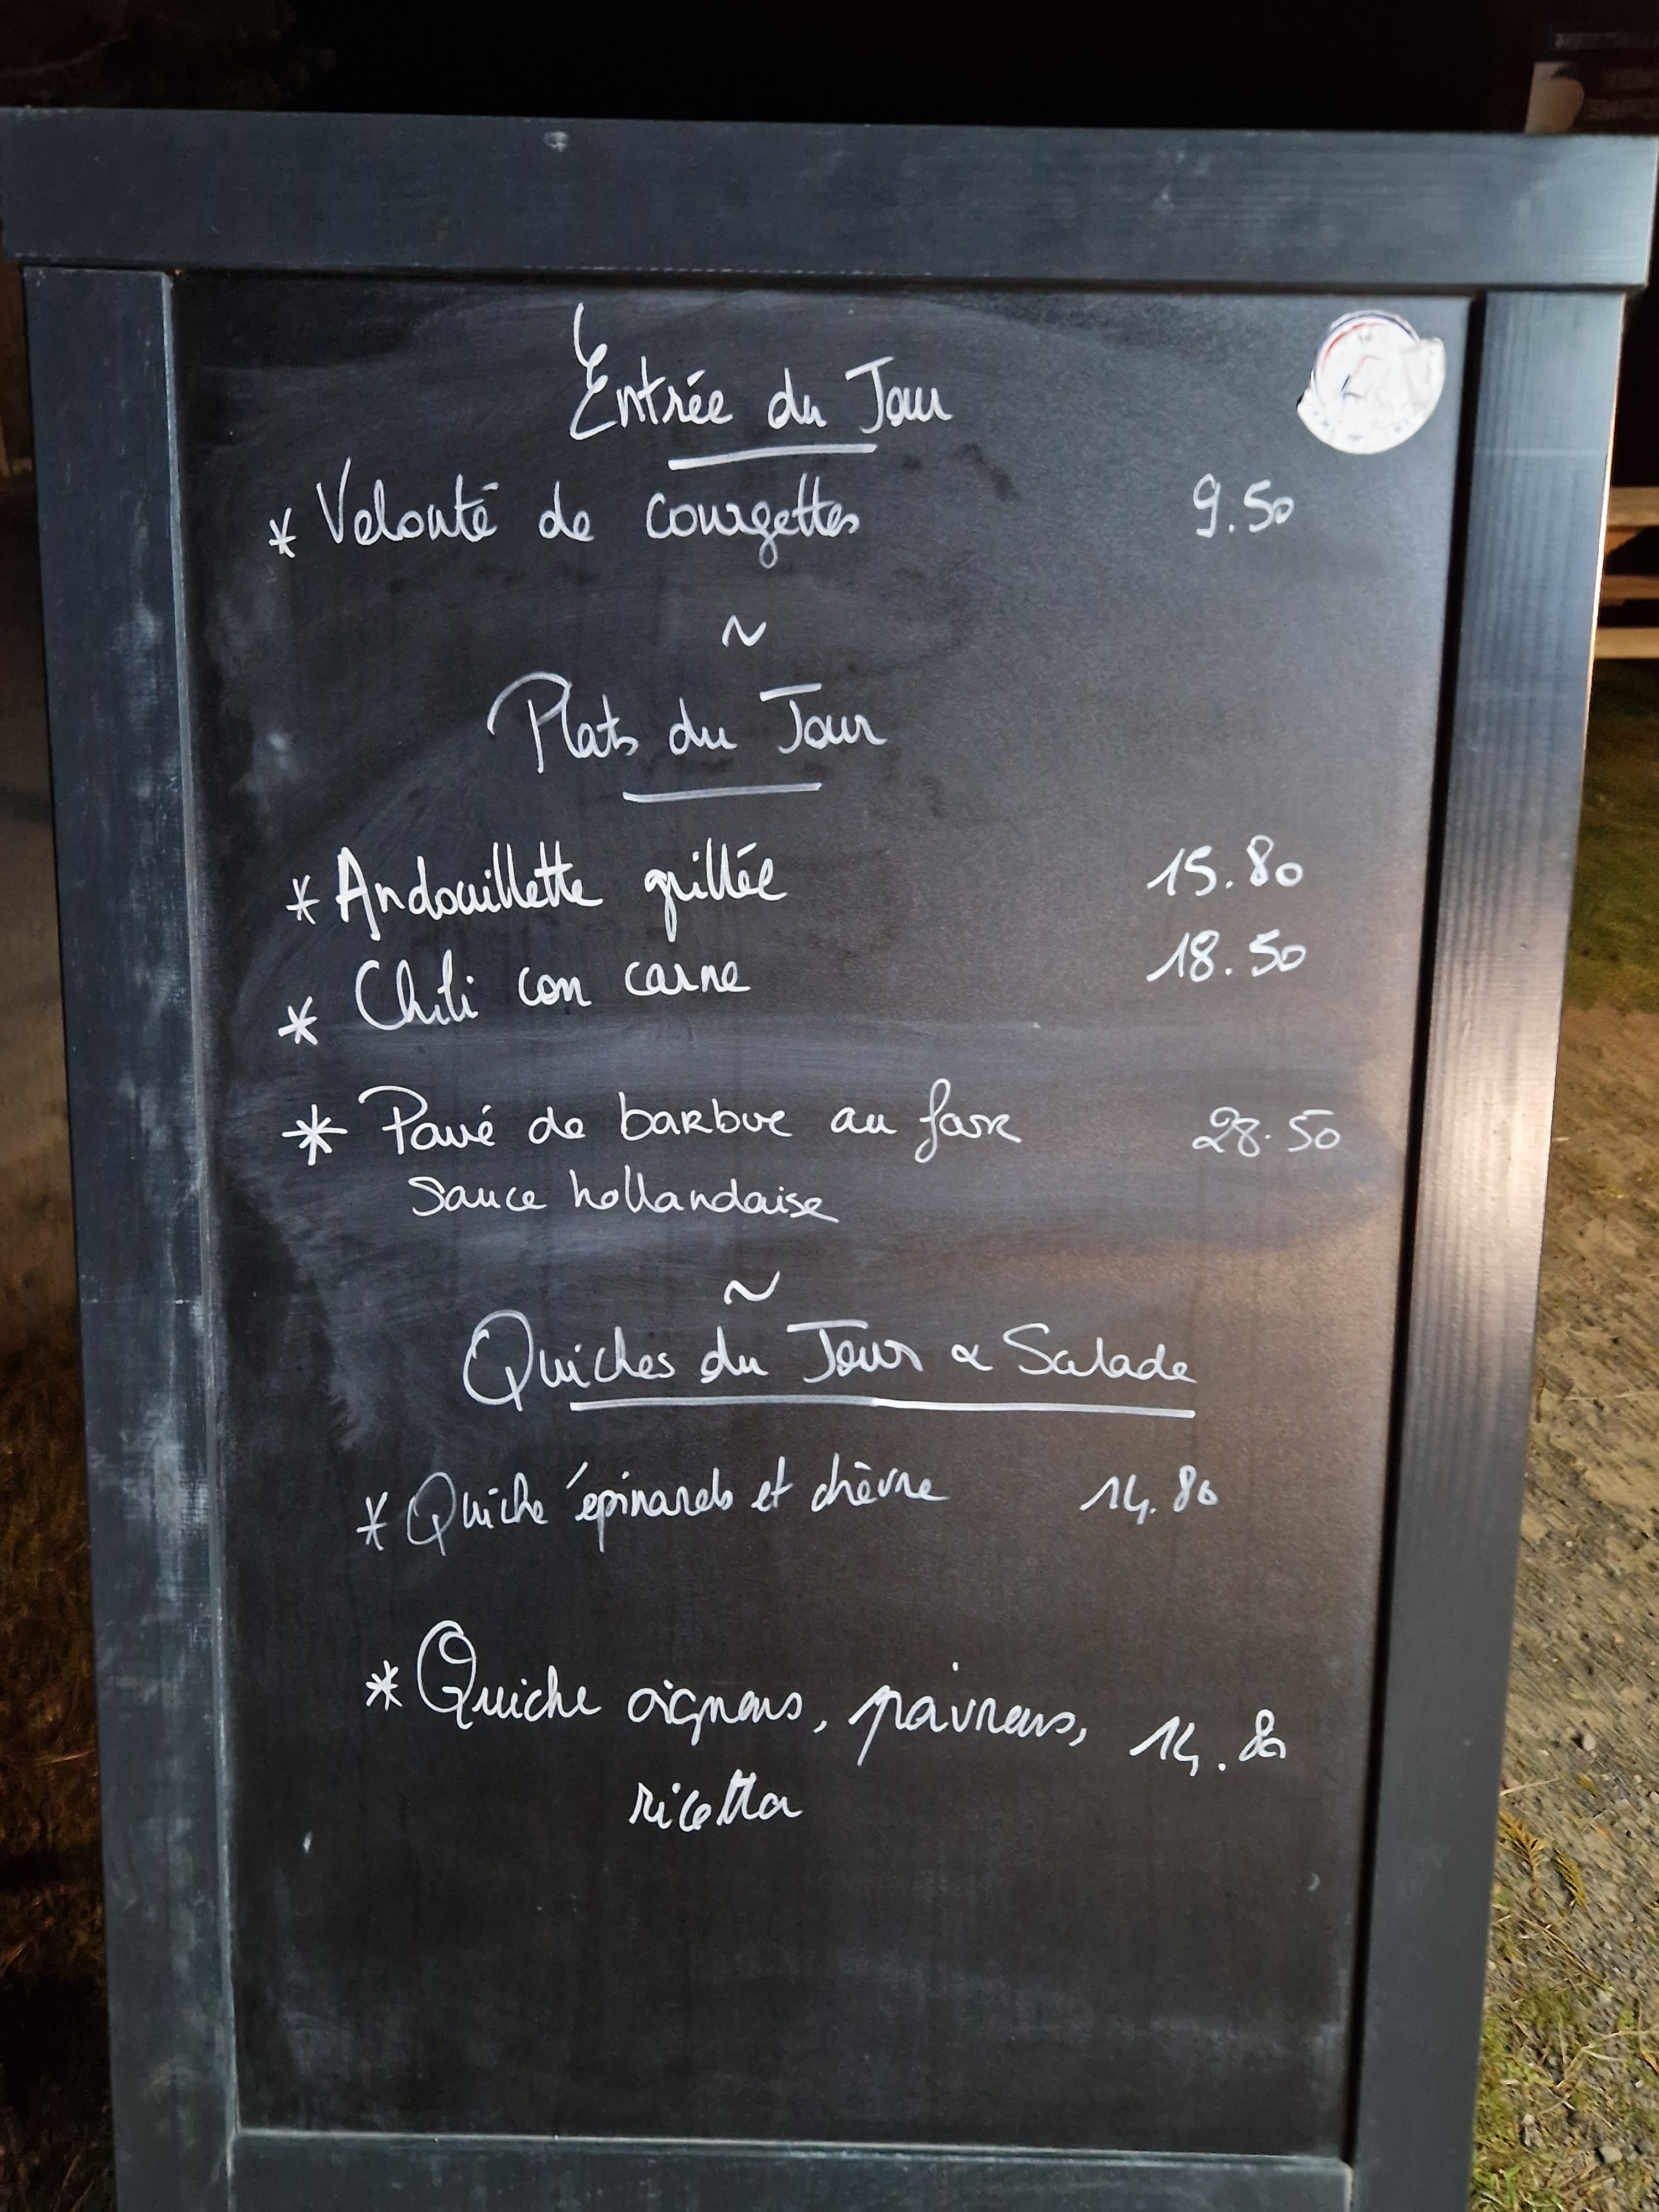 Entrée du Jour
* Velouté de courgettes 9.50
~
Plats du Jour
* Andouillette grillée 15.80
* Chili con carne 18.50
* Pavé de barbue au four 28.50
sauce hollandaise
~
Quiches du Jour & Salade
* Quiche épinards et chèvre 14.80
* Quiche oignons, poivrons, 14.80
ricotta